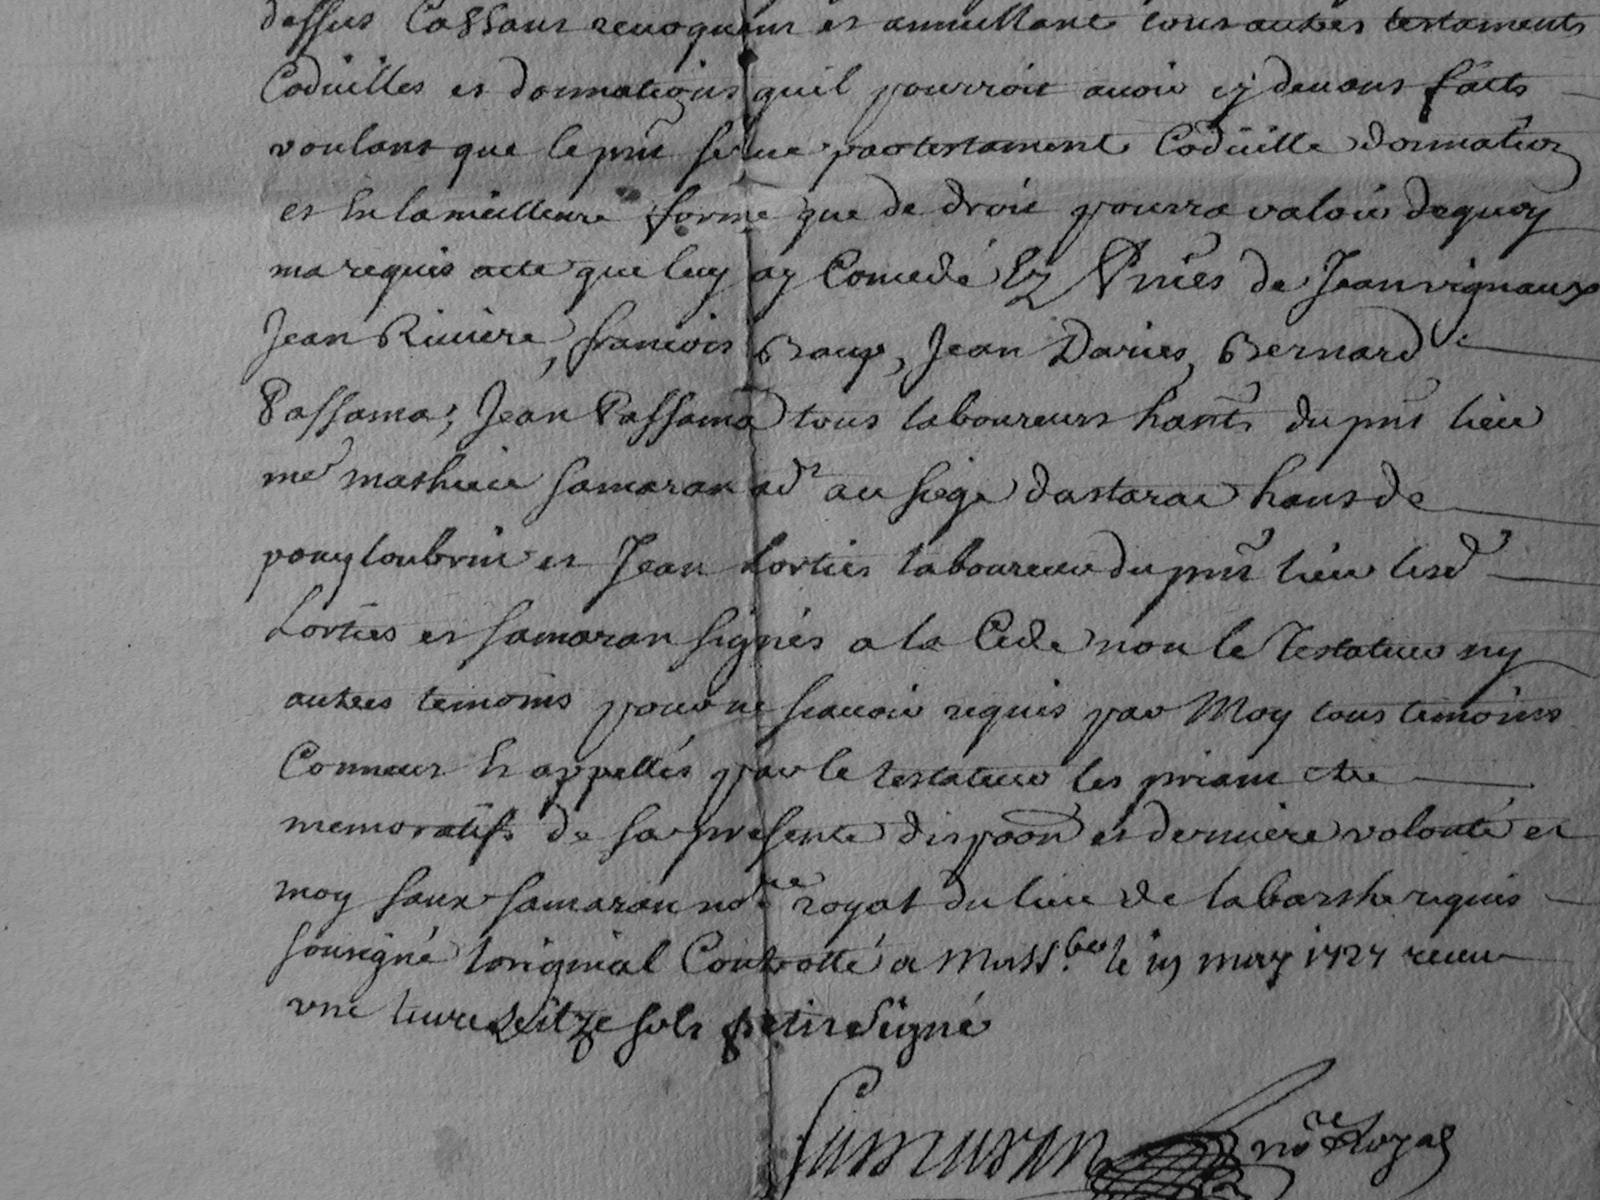 dessus Cassant revoquant et annullant tous autres testaments
Codicilles et donnations quil pourroit avoir cy devant faits
voulant que le pnt serve par testament Codicille donnation
et En la meilleure forme que de droit pourra valoir dequoy
ma requis acte que luy ay Concedé Ez Pnces de Jean vignaux
Jean Riviere, francois Baup, Jean Daries, Bernard
Passama, Jean Passama tous laboureurs hants du pnt lieu
me mathieu Samaran adt au siege dastarac hant de
pouyloubrin et Jean Lorties laboureur du pnt lieu lesd
Lorties et Samaran signés a la Cede non le Testateur ny
autres temoins pour ne scavoir requis par Moy tous temoins
Conneus Et appellés par le testateur les priant etre
memoratifs de sa presente dispoon et derniere volonté et
moy Samaran nore royal du lieu de labarthe requis
sousigné loriginal Controllé a Mass.be le 19 may 1727 receu
vne livre seitze sols petit Signé
Samaran nore Royal